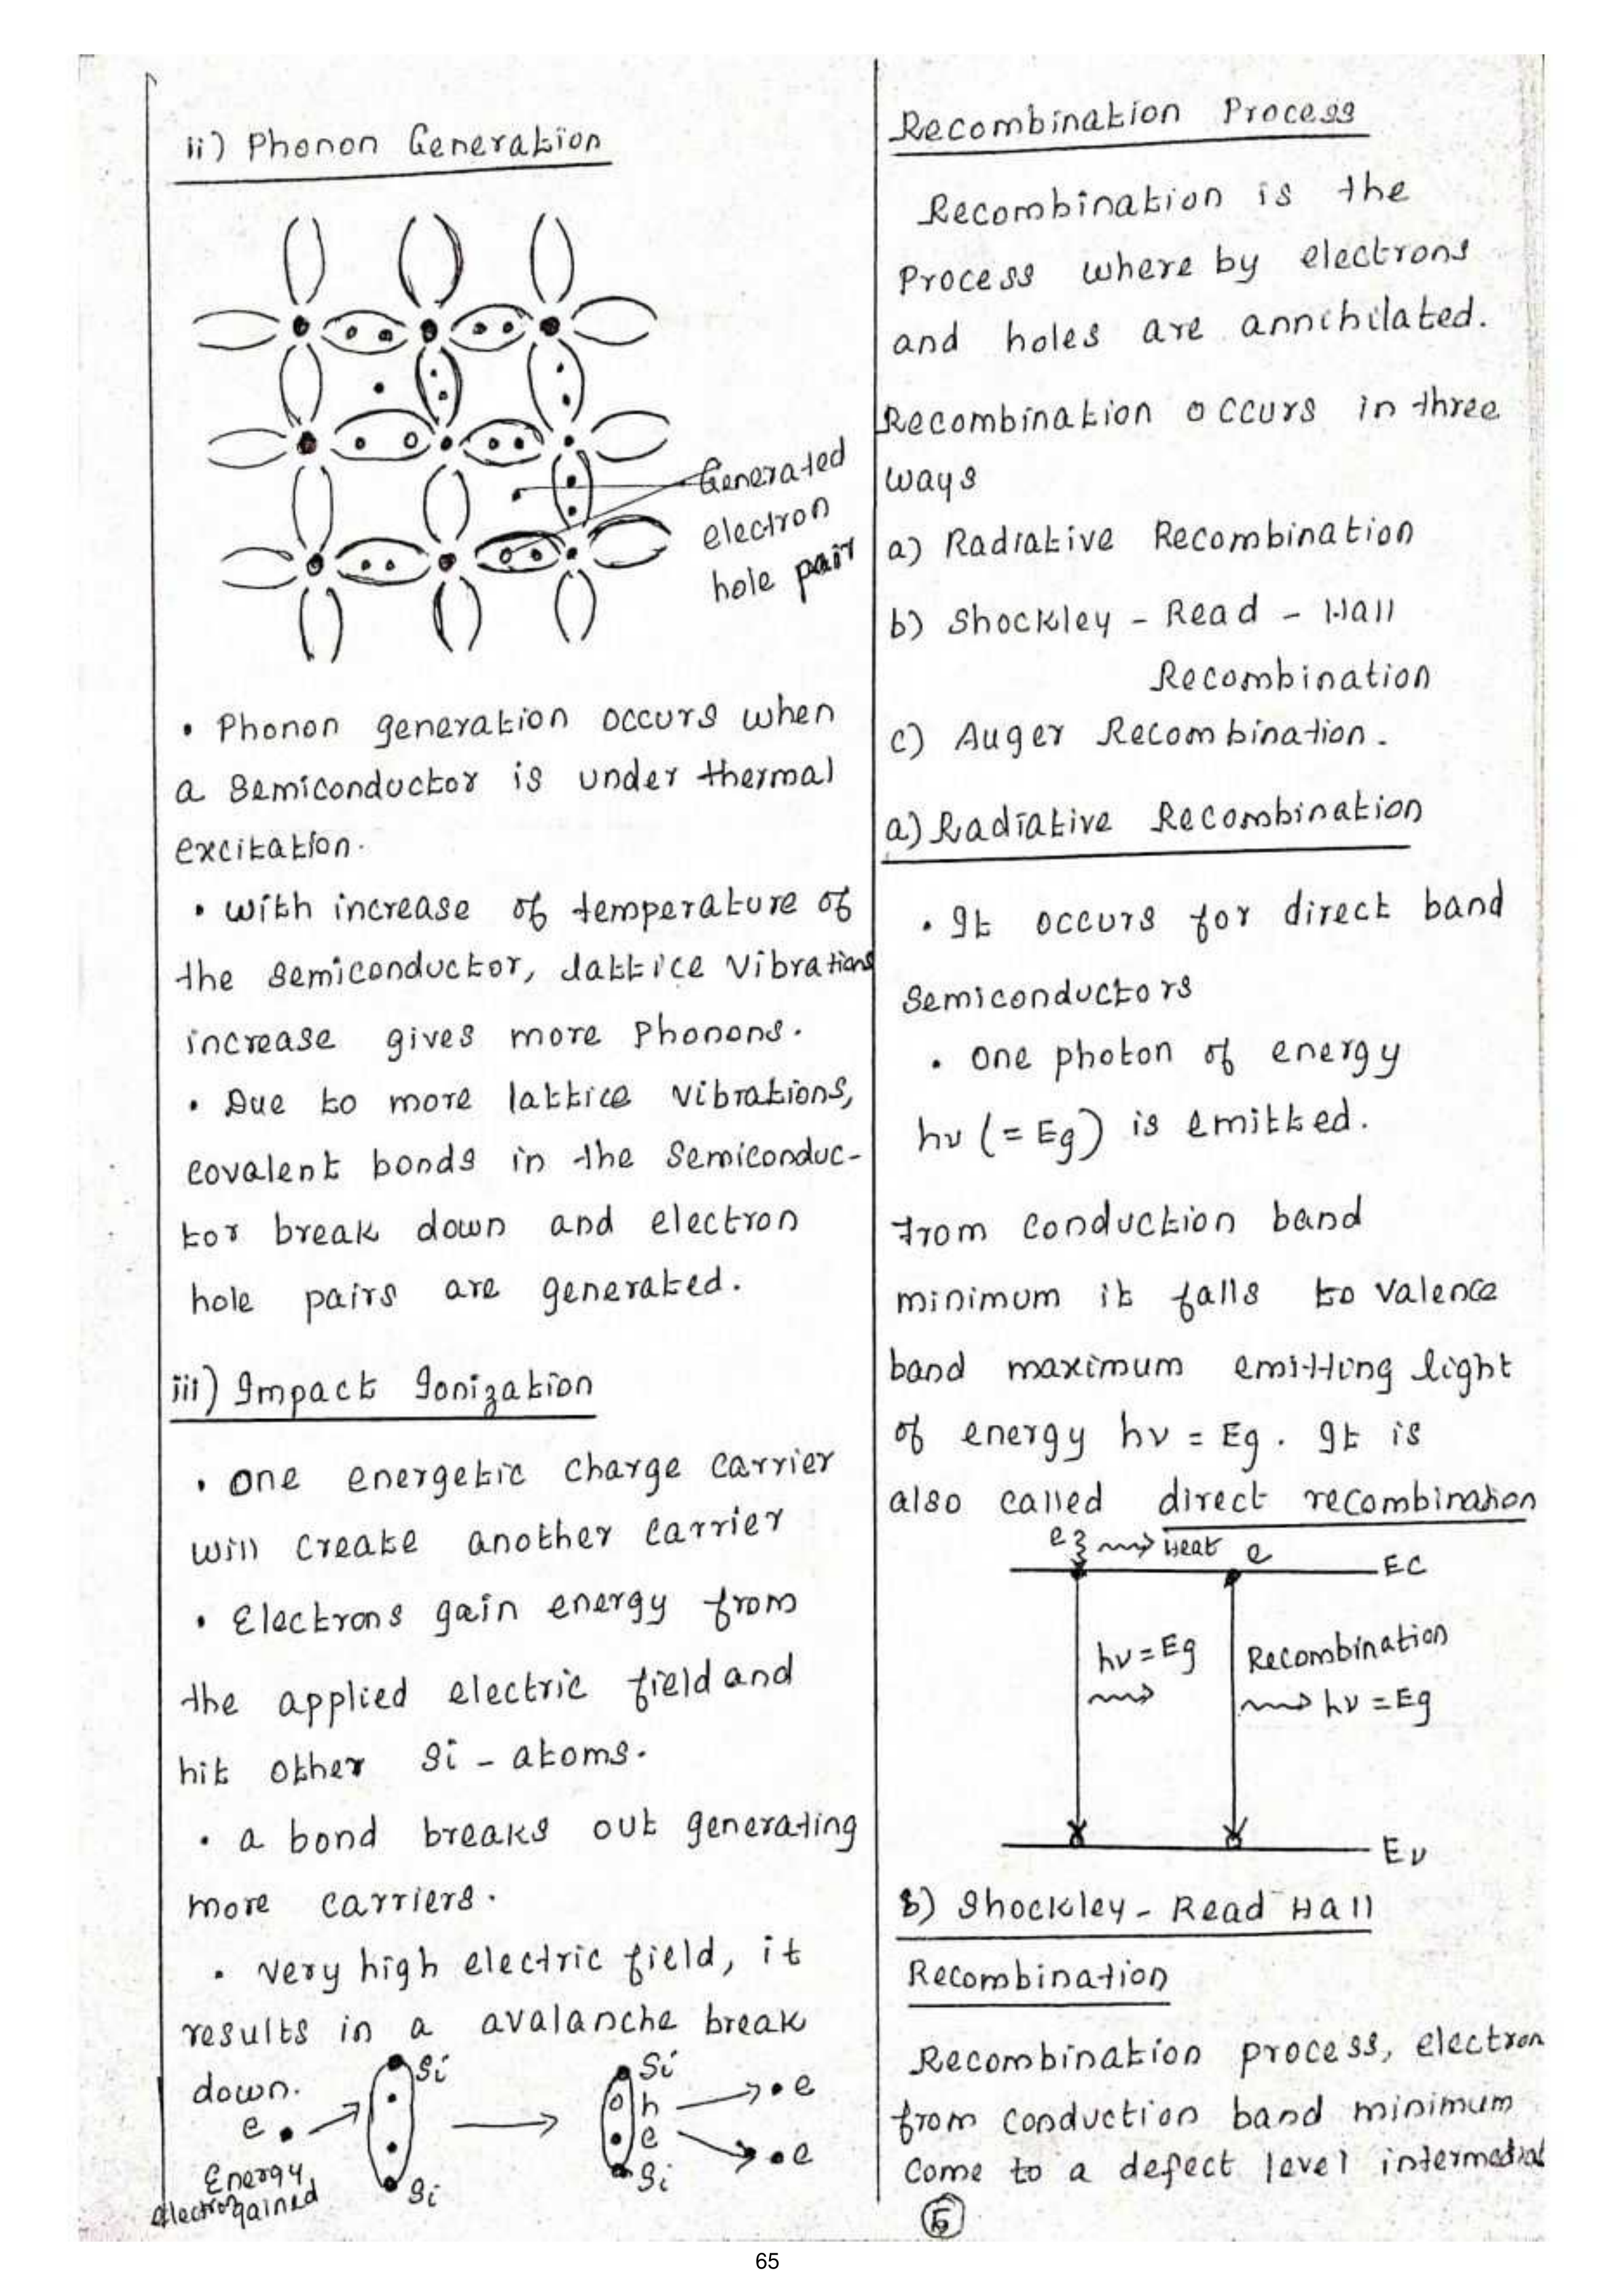 ii) Phonon Generation
Generated
electron
hole pair
• Phonon generation occurs when
a Semiconductor is under thermal
excitation.
• With increase of temperature of
the semiconductor, lattice vibrations
increase gives more Phonons.
• Due to more lattice vibrations,
covalent bonds in the Semiconduc-
tor break down and electron
hole pairs are generated.
iii) Impact Ionization
• One energetic charge carrier
will create another carrier
• Electrons gain energy from
the applied electric field and
hit other Si - atoms.
• a bond breaks out generating
more carriers.
• Very high electric field, it
results in a avalanche break
down.
Si
e
Energy
gained
electron
Si
Si
h
e
Si
e
e
Recombination Process
Recombination is the
Process where by electrons
and holes are annihilated.
Recombination occurs in three
ways
a) Radiative Recombination
b) Shockley - Read - Hall
Recombination
c) Auger Recombination.
a) Radiative Recombination
• It occurs for direct band
Semiconductors
• One photon of energy
hν (= Eg) is emitted.
from conduction band
minimum it falls to valence
band maximum emitting light
of energy hν = Eg. It is
also called direct recombination
e Heat e
EC
hν = Eg Recombination
hν = Eg
Eν
b) Shockley - Read Hall
Recombination
Recombination process, electron
from conduction band minimum
come to a defect level
5
65